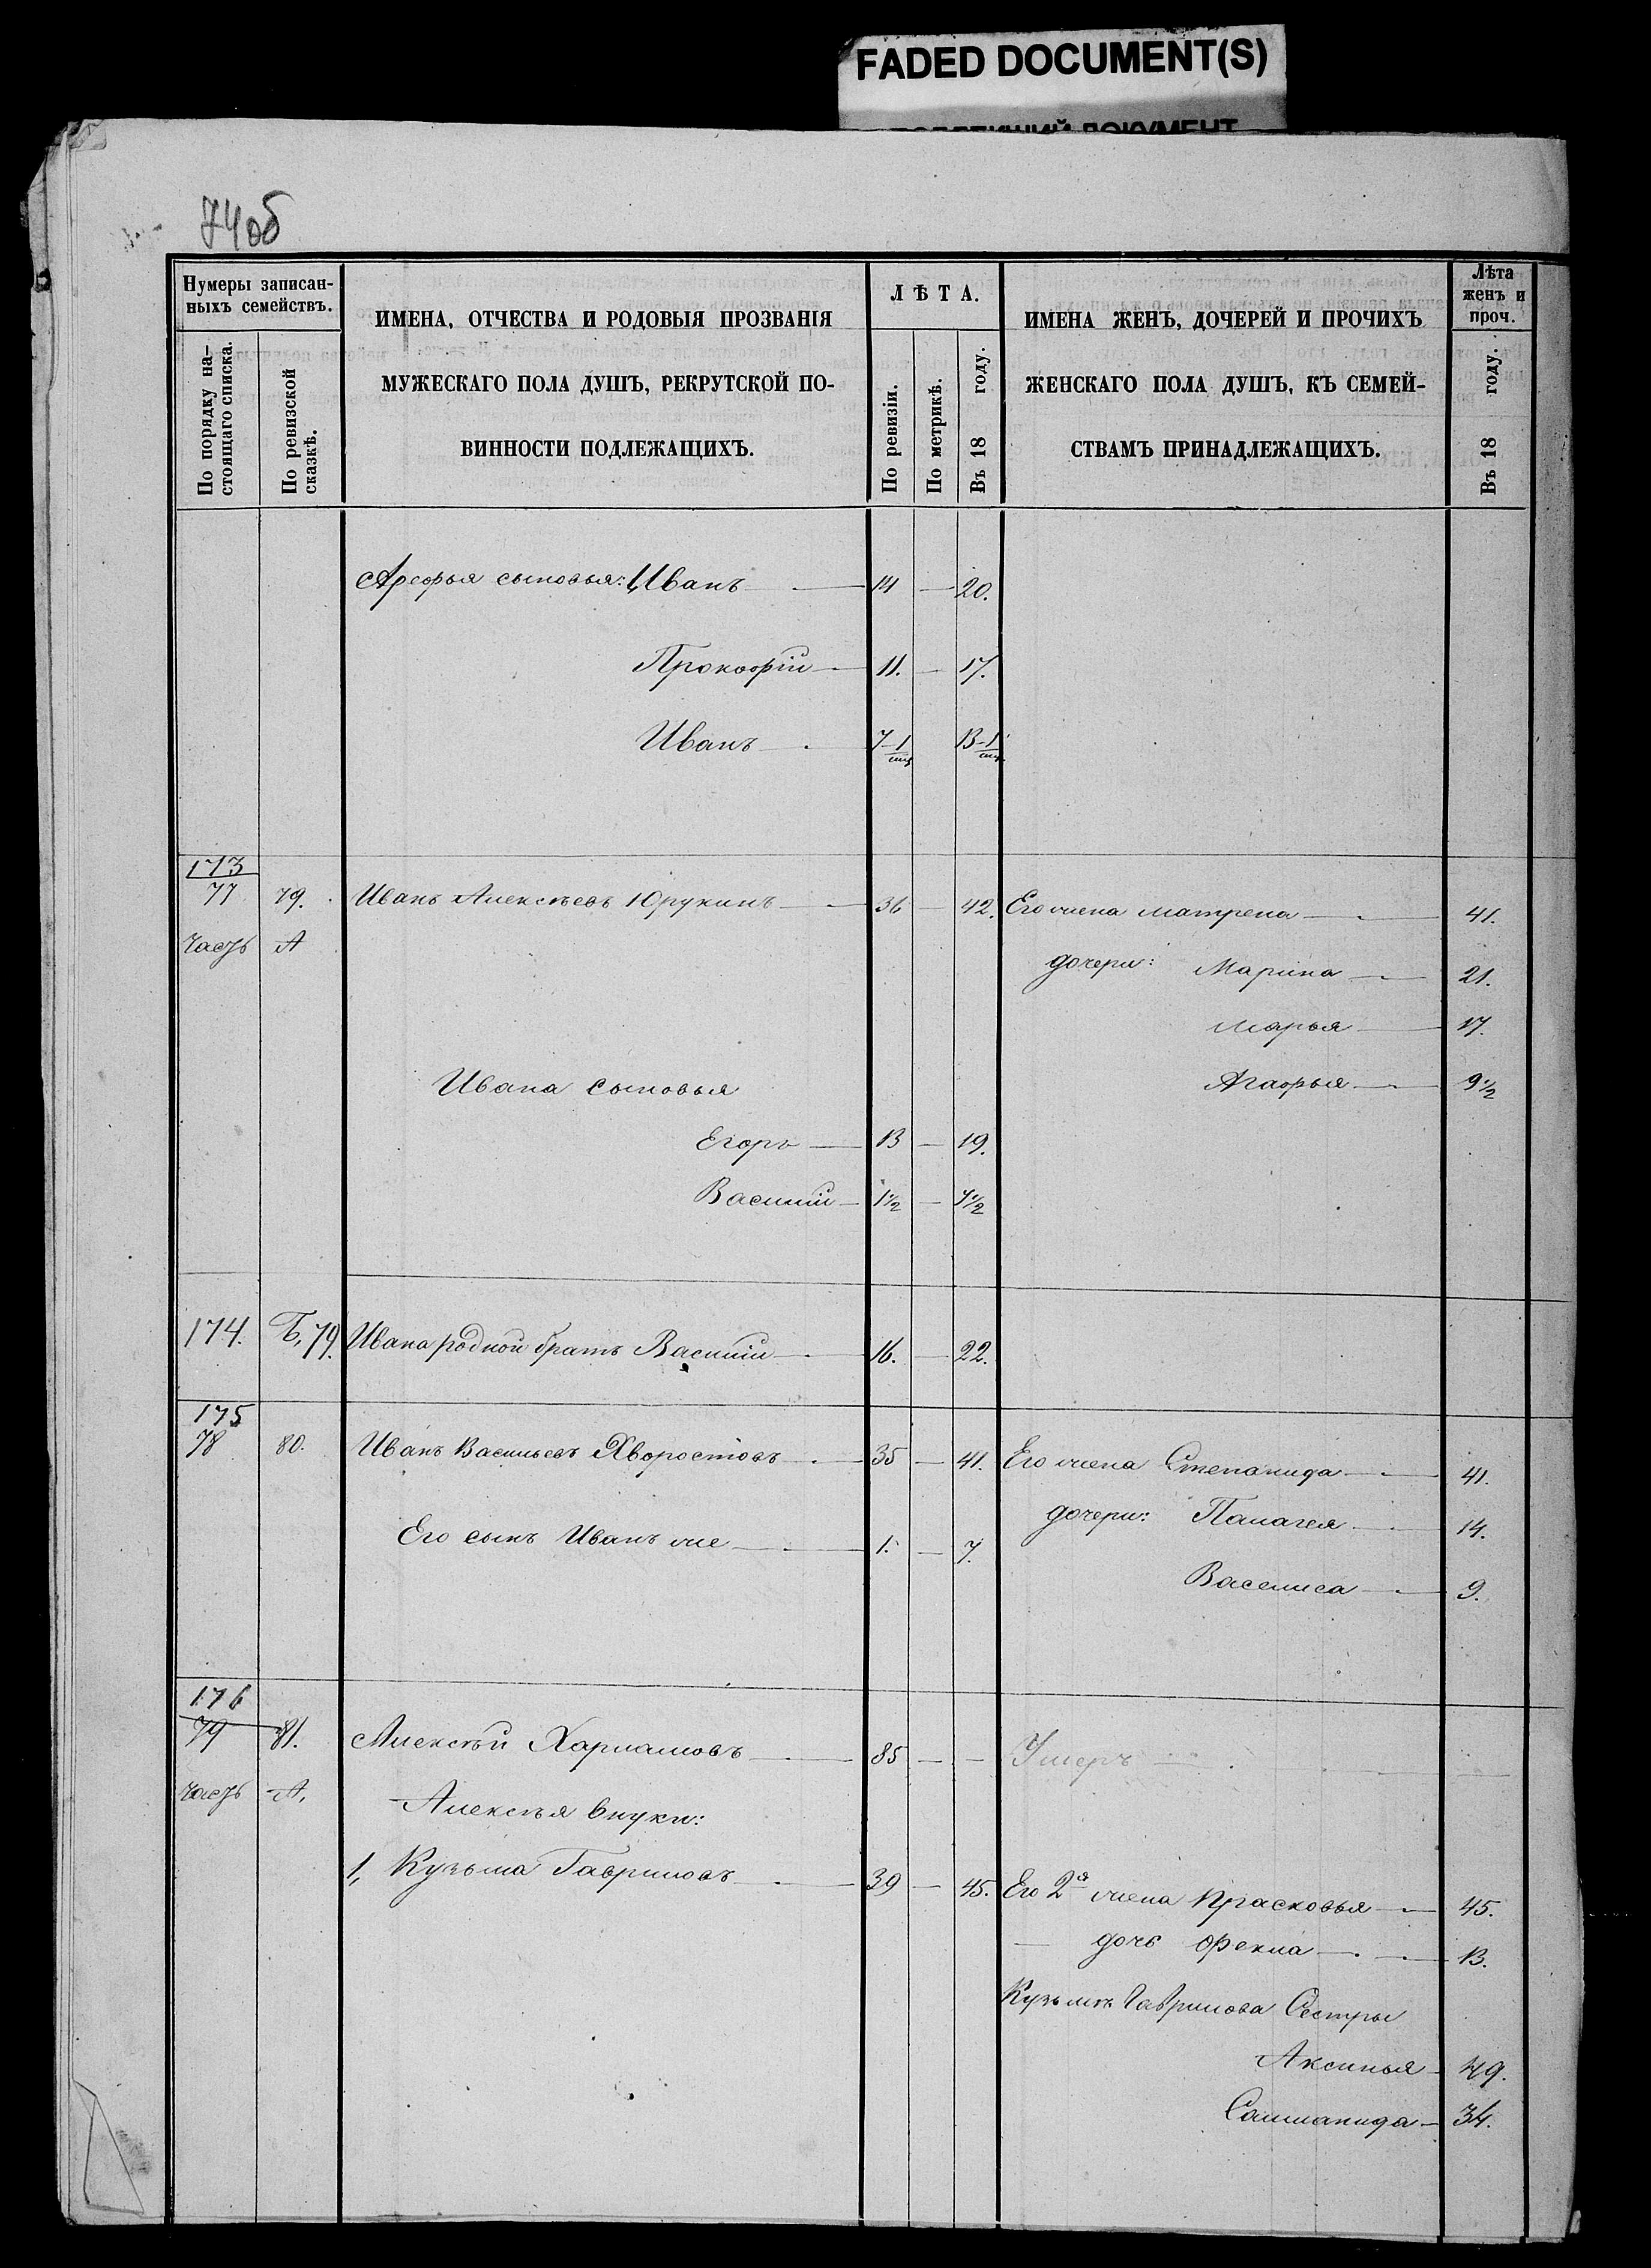 FADED DOCUMENT(S)
74об
Нумеры записан-
ныхъ семействъ.
По порядку на-
стоящаго списка.
По ревизской
сказкѣ.
ИМЕНА, ОТЧЕСТВА И РОДОВЫЯ ПРОЗВАНІЯ
МУЖЕСКАГО ПОЛА ДУШЪ, РЕКРУТСКОЙ ПО-
ВИННОСТИ ПОДЛЕЖАЩИХЪ.
ЛѢТА.
По ревизіи.
По метрикѣ.
Въ 18 году.
ИМЕНА ЖЕНЪ, ДОЧЕРЕЙ И ПРОЧИХЪ
ЖЕНСКАГО ПОЛА ДУШЪ, КЪ СЕМЕЙ-
СТВАМЪ ПРИНАДЛЕЖАЩИХЪ.
Лѣта
женъ и
проч.
Въ 18 году.
Арефья сыновья: Иванъ — 14 — 20.
Прокофій — 11. — 17.
Иванъ — 7-1/мц 13-1/мц
173
77 79. Иванъ Алексѣевъ Юрукинъ — 36 — 42. Его жена Матрена — 41.
часть А
дочери: Марина — 21.
Марья — 17.
Ивана сыновья
Агафья — 9 1/2
Егоръ — 13 — 19.
Василій — 1 1/2 — 7 1/2
174. Б, 79. Ивана родной братъ Василій — 16. — 22.
175
78 80. Иванъ Васильевъ Хворостовъ — 35 — 41. Его жена Степанида — 41.
дочери: Палагея — 14.
Его сынъ Иванъ же — 1. — 7.
Васелиса — 9.
176
79 81. Алексѣй Харламовъ — 85 — — Умеръ —
часть А,
Алексѣя внуки:
1, Кузьма Гавриловъ — 39 — 45. Его 2я жена Прасковья — 45.
— дочь Фекла — 13.
Кузьмъ Гаврилова Сестры
Аксинья — 49.
Саломанида — 34.